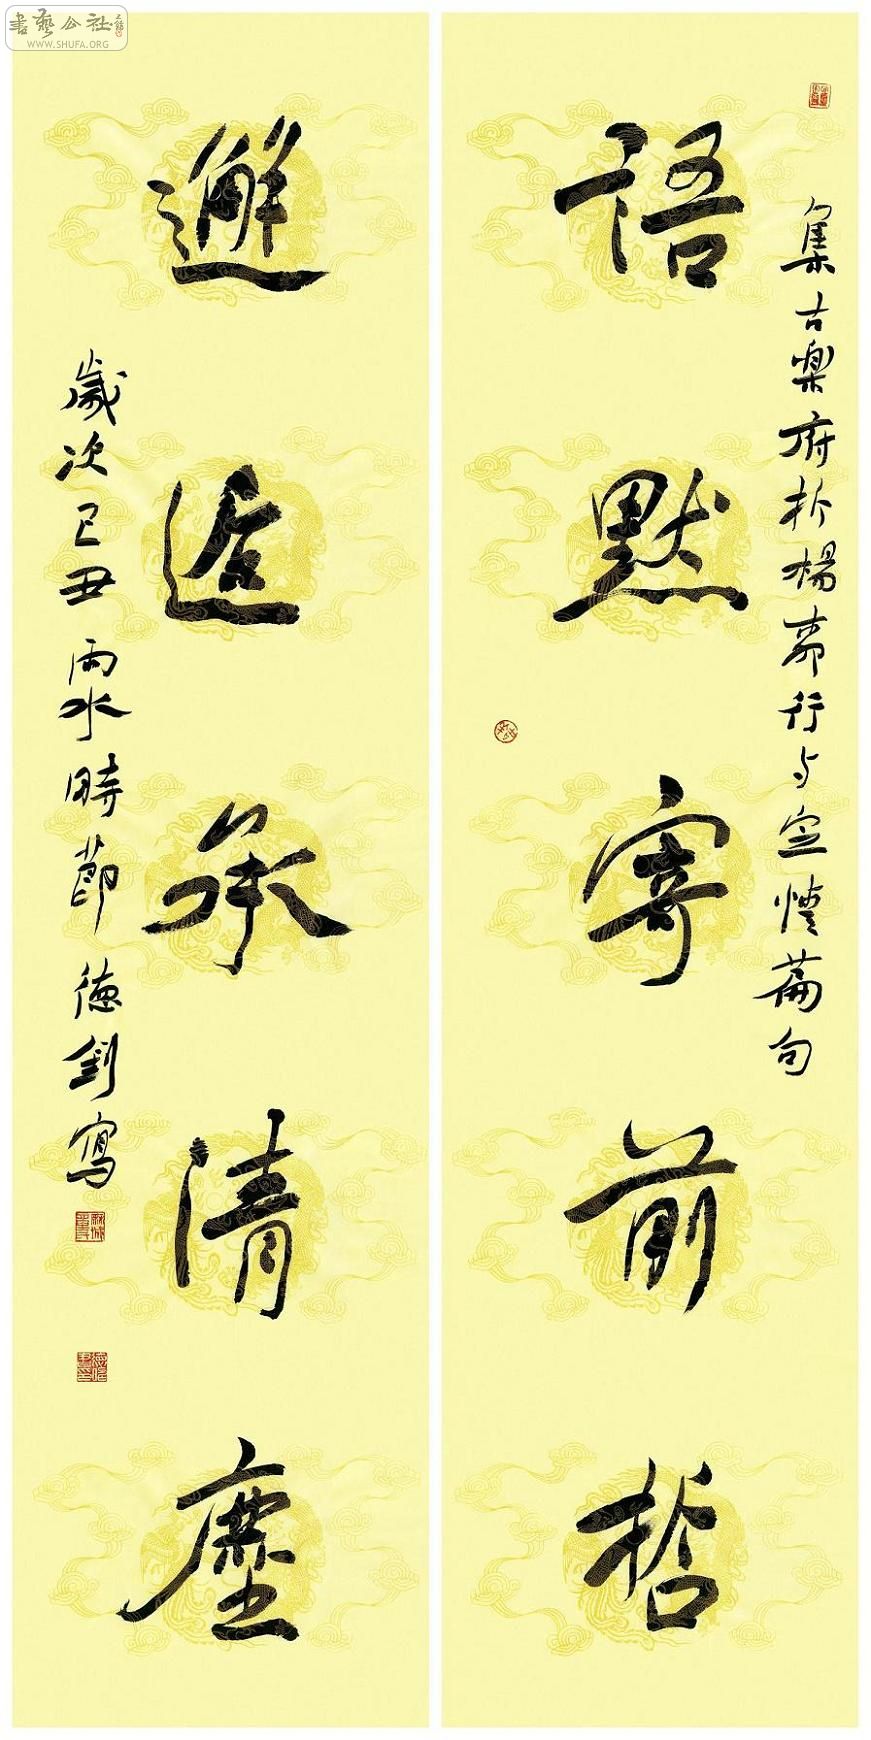 書藝公社
WWW.SHUFA.ORG
集古樂府折楊柳行与定情篇句
語默寄前哲
邂逅承清塵
歲次己丑雨水時節德釗寫